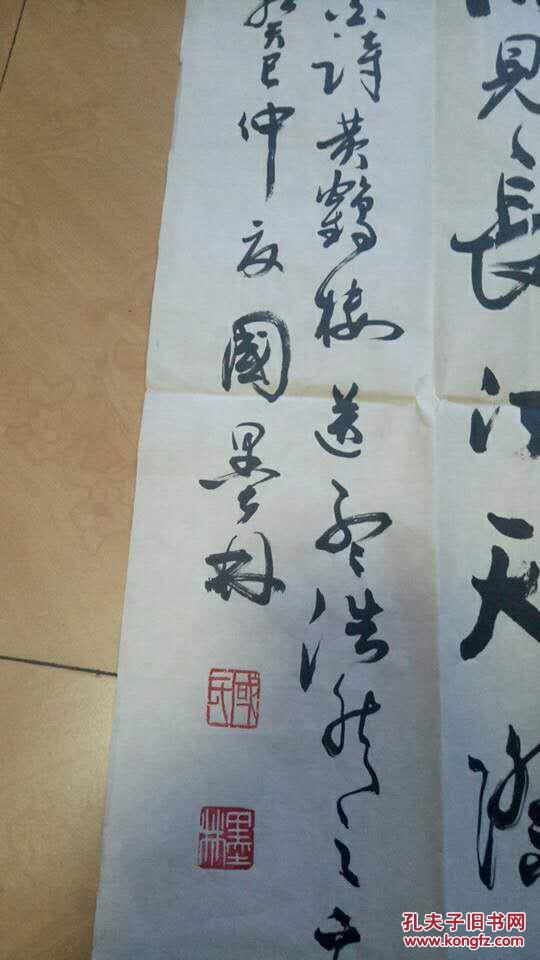 見長江天際
白詩黄鶴楼送孟浩然之
癸巳仲夏國墨林
國氏
墨林
孔夫子旧书网
www.kongfz.com